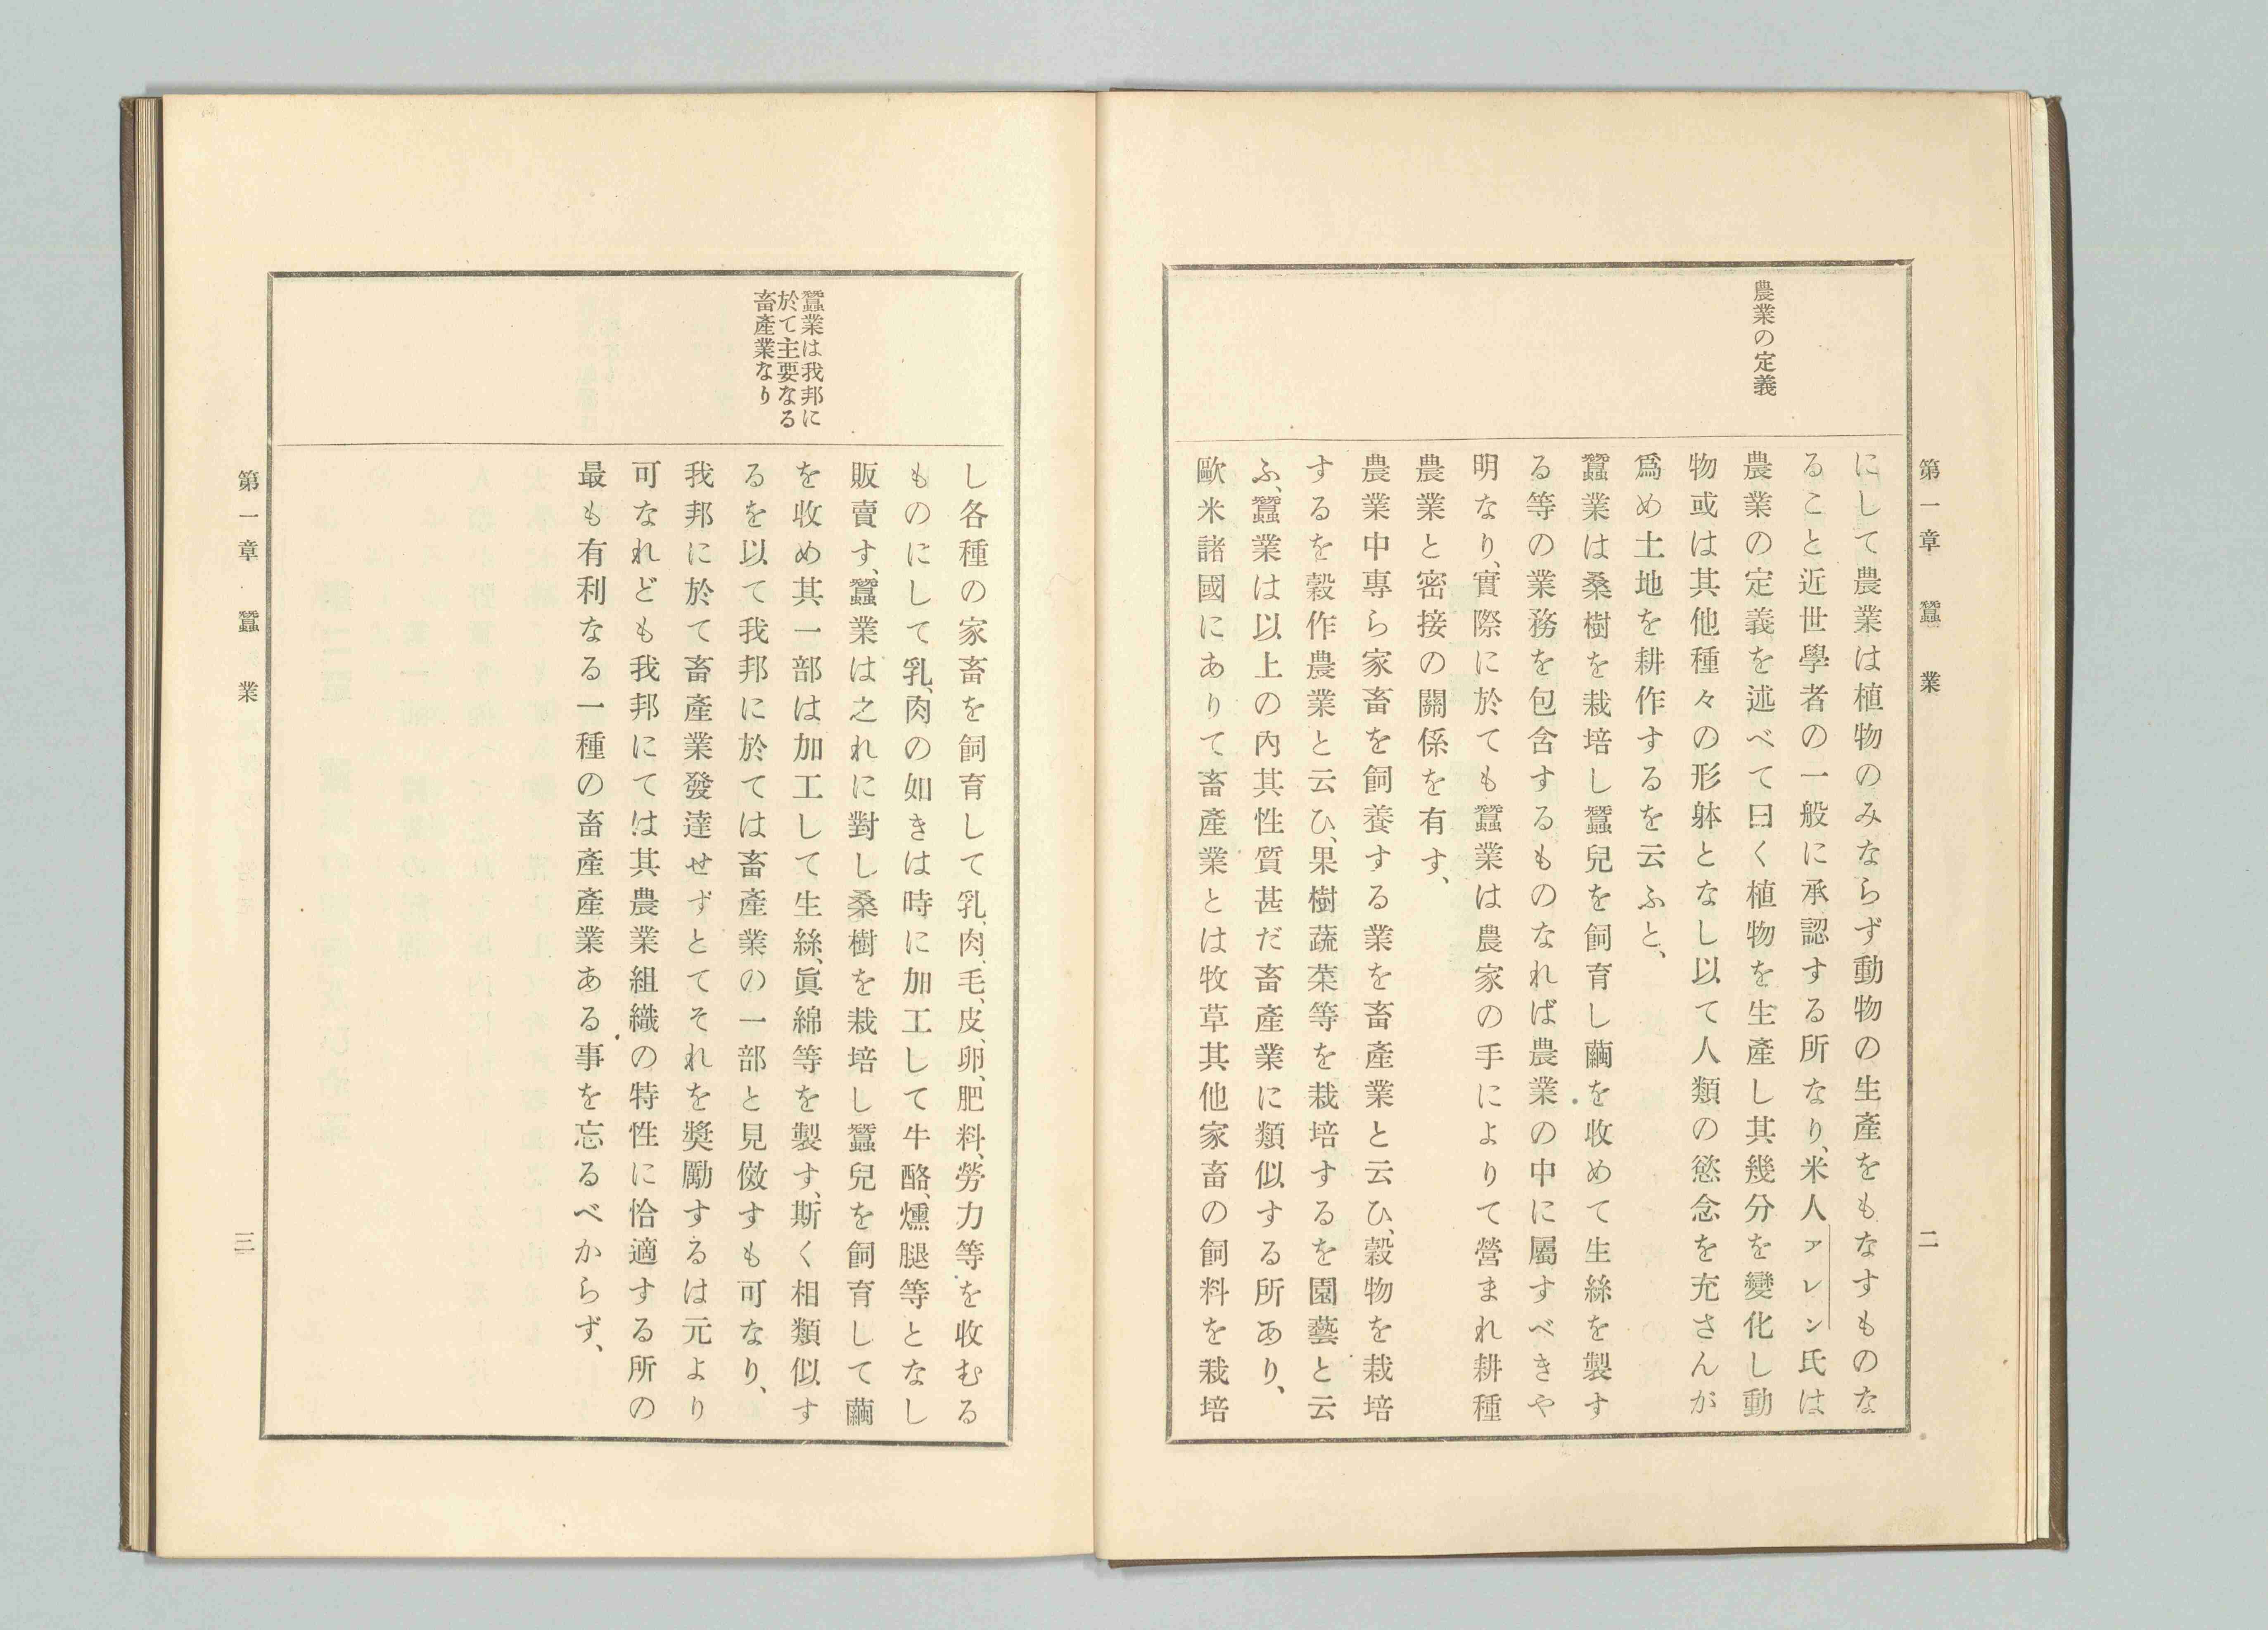 第一章 蠶業
二
農業の定義
にして農業は植物のみならず動物の生產をもなすものな
ること近世學者の一般に承認する所なり、米人アレン氏は
農業の定義を述べて曰く植物を生產し其幾分を變化し動
物或は其他種々の形躰となし以て人類の慾念を充さんが
爲め土地を耕作するを云ふと、
蠶業は桑樹を栽培し蠶兒を飼育し繭を收めて生絲を製す
る等の業務を包含するものなれば農業の中に屬すべきや
明なり、實際に於ても蠶業は農家の手によりて營まれ耕種
農業と密接の關係を有す、
農業中專ら家畜を飼養する業を畜產業と云ひ、穀物を栽培
するを穀作農業と云ひ、果樹蔬菜等を栽培するを園藝と云
ふ、蠶業は以上の內其性質甚だ畜產業に類似する所あり、
歐米諸國にありて畜產業とは牧草其他家畜の飼料を栽培
蠶業は我邦に
於て主要なる
畜產業なり
し各種の家畜を飼育して乳、肉、毛、皮、卵、肥料、勞力等を收むる
ものにして乳、肉の如きは時に加工して牛酪、燻腿等となし
販賣す、蠶業は之れに對し桑樹を栽培し蠶兒を飼育して繭
を收め其一部は加工して生絲、眞綿等を製す、斯く相類似す
るを以て我邦に於ては畜產業の一部と見傚すも可なり、
我邦に於て畜產業發達せずとてそれを奬勵するは元より
可なれども我邦にては其農業組織の特性に恰適する所の
最も有利なる一種の畜產產業ある事を忘るべからず、
第一章 蠶業
三